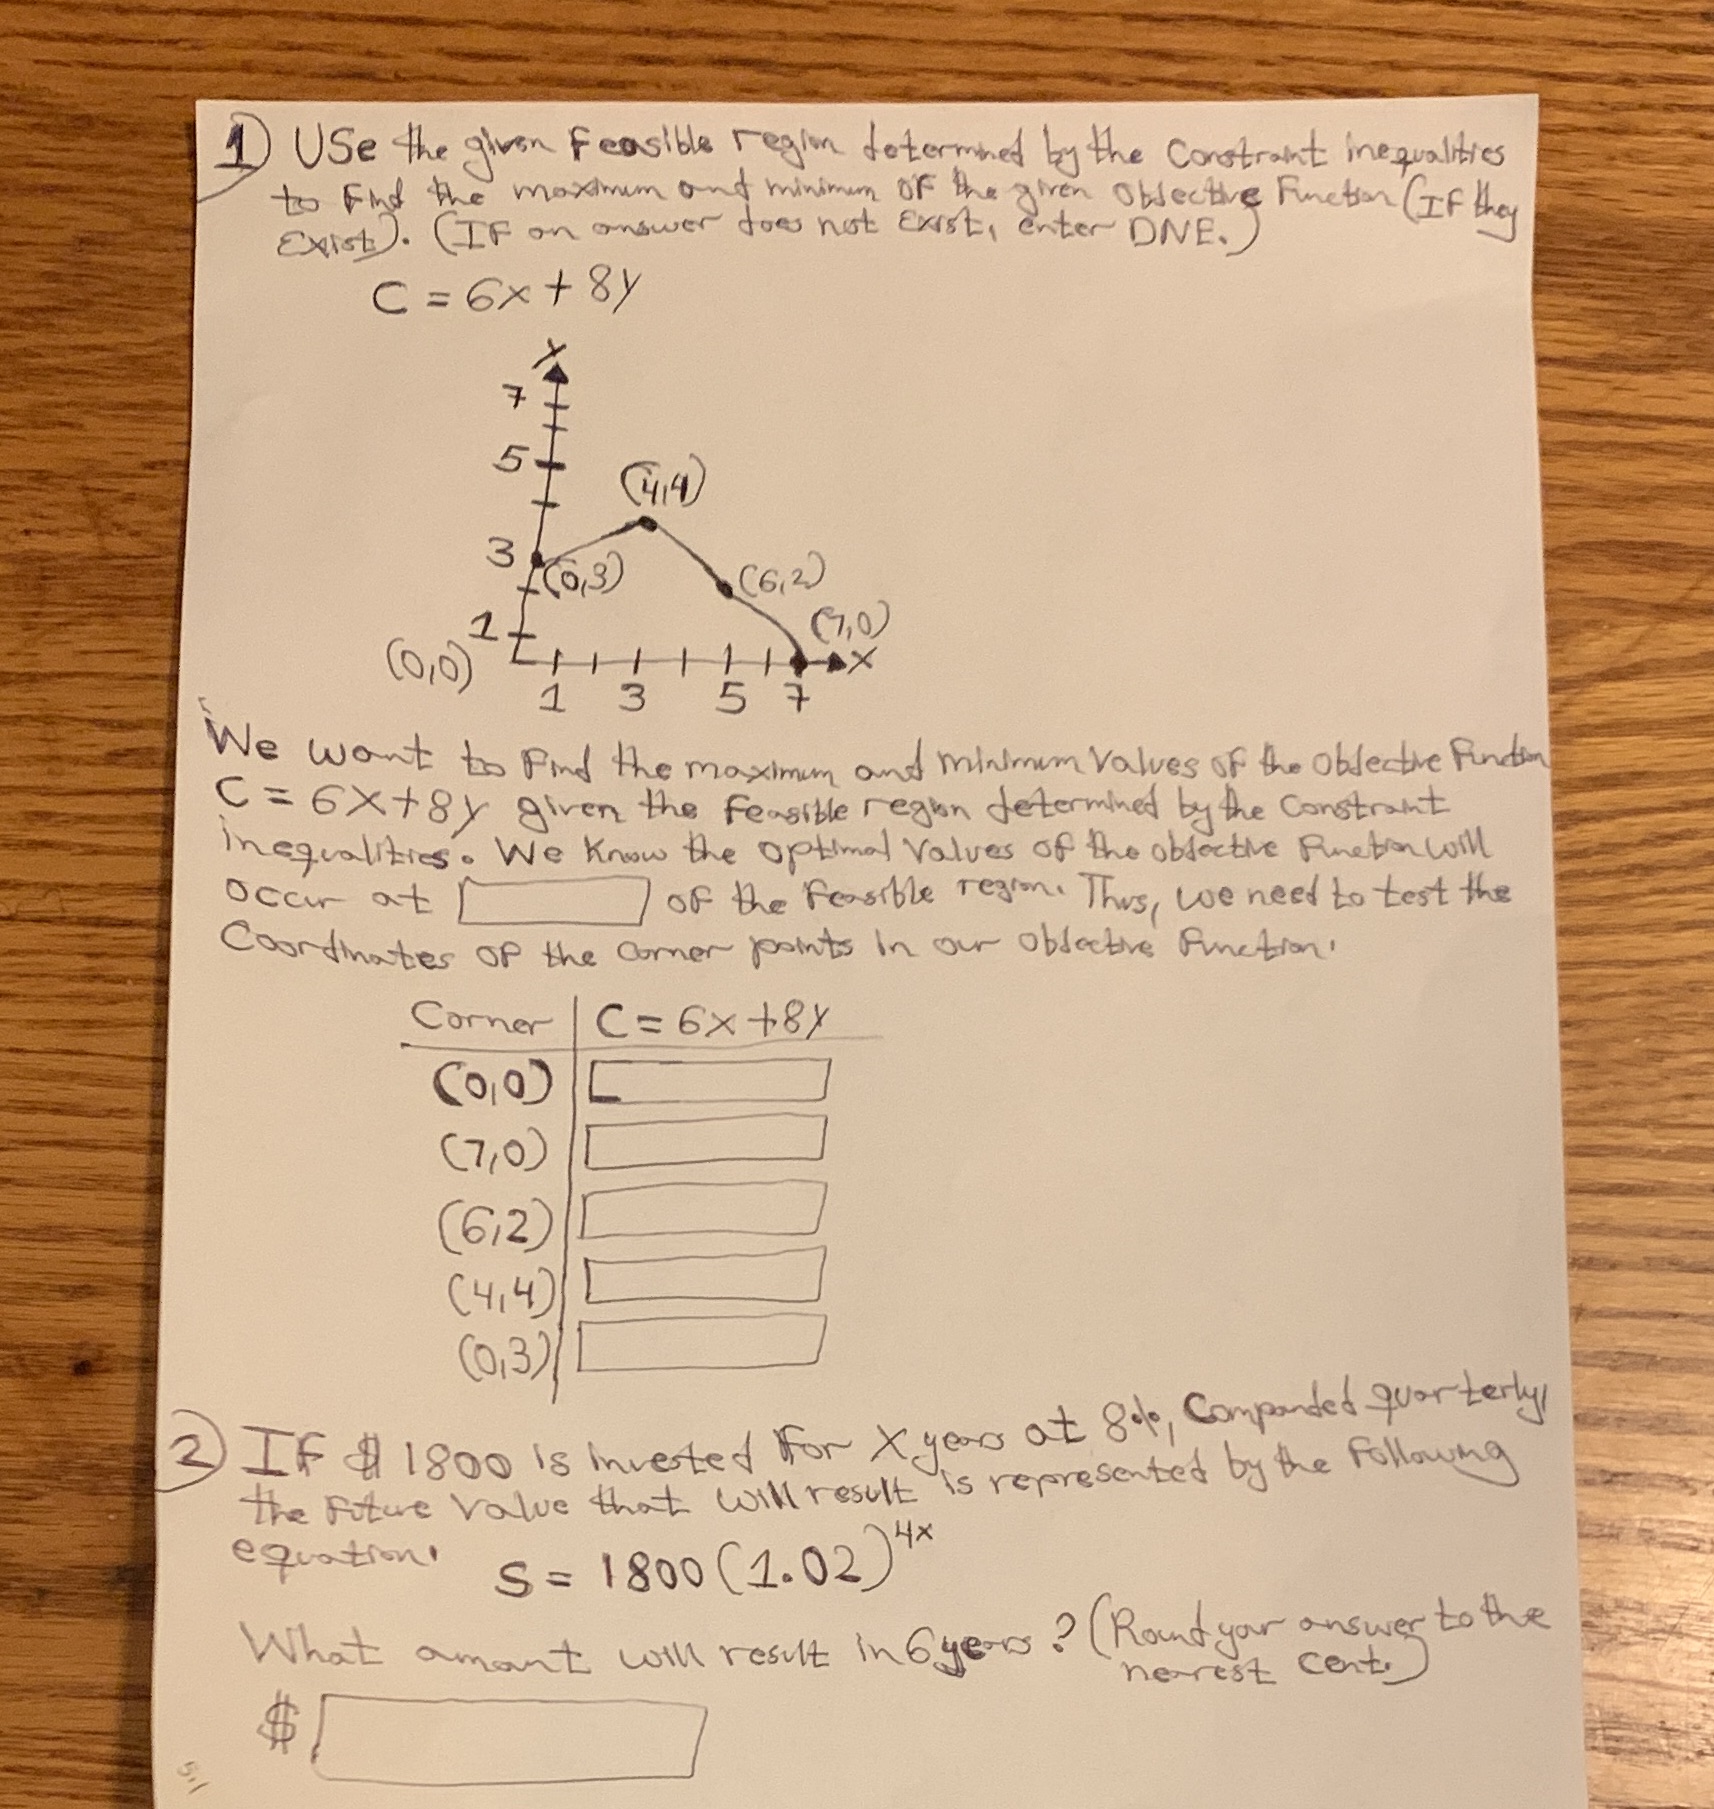 1) Use the given feasible region determined by the constraint inequalities
to find the maximum and minimum of the given objective function (If they
exist). (If an answer does not exist, enter DNE.)
C = 6x + 8y
y
7
5
(4,4)
3
(0,3)
(6,2)
(7,0)
1
(0,0)
x
1 3 5 7
We want to find the maximum and minimum values of the objective function
C = 6x+8y given the feasible region determined by the constraint
inequalities. We know the optimal values of the objective function will
occur at of the feasible region. Thus, we need to test the
coordinates of the corner points in our objective function.
Corner C = 6x +8y
(0,0)
(7,0)
(6,2)
(4,4)
(0,3)
2) If $1800 is invested for x years at 8%, compounded quarterly,
the future value that will result is represented by the following
equation.
S = 1800(1.02)^4x
What amount will result in 6 years? (Round your answer to the
nearest cent.)
$
5.1